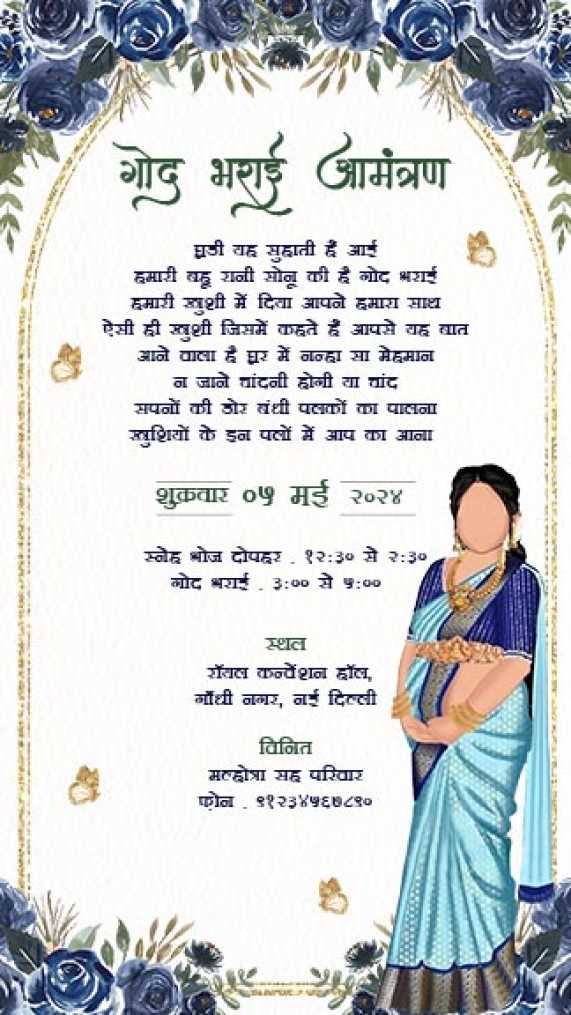 गोद भराई आमंत्रण
घड़ी यह सुहाती हैं आई
हमारी बहू रानी सोनू की है गोद भराई
हमारी खुशी में दिया आपने हमारा साथ
ऐसी ही खुशी जिसमें कहते हैं आपसे यह बात
आने वाला है घर में नन्हा सा मेहमान
न जाने चांदनी होगी या चांद
सपनों की डोर बंधी पलकों का पालना
खुशियों के इन पलों में आप का आना
शुक्रवार ०५ मई २०२४
स्नेह भोज दोपहर . १२:३० से २:३०
गोद भराई . ३:०० से ५:००
स्थल
रॉयल कन्वेंशन हॉल,
गाँधी नगर, नई दिल्ली
विनित
मल्होत्रा सह परिवार
फ़ोन . ९१२३४५६७८९०